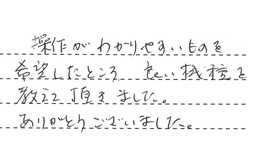 操作がわかりやすいものを
希望したところ 良い機種を
教えて頂きました。
ありがとうございました。